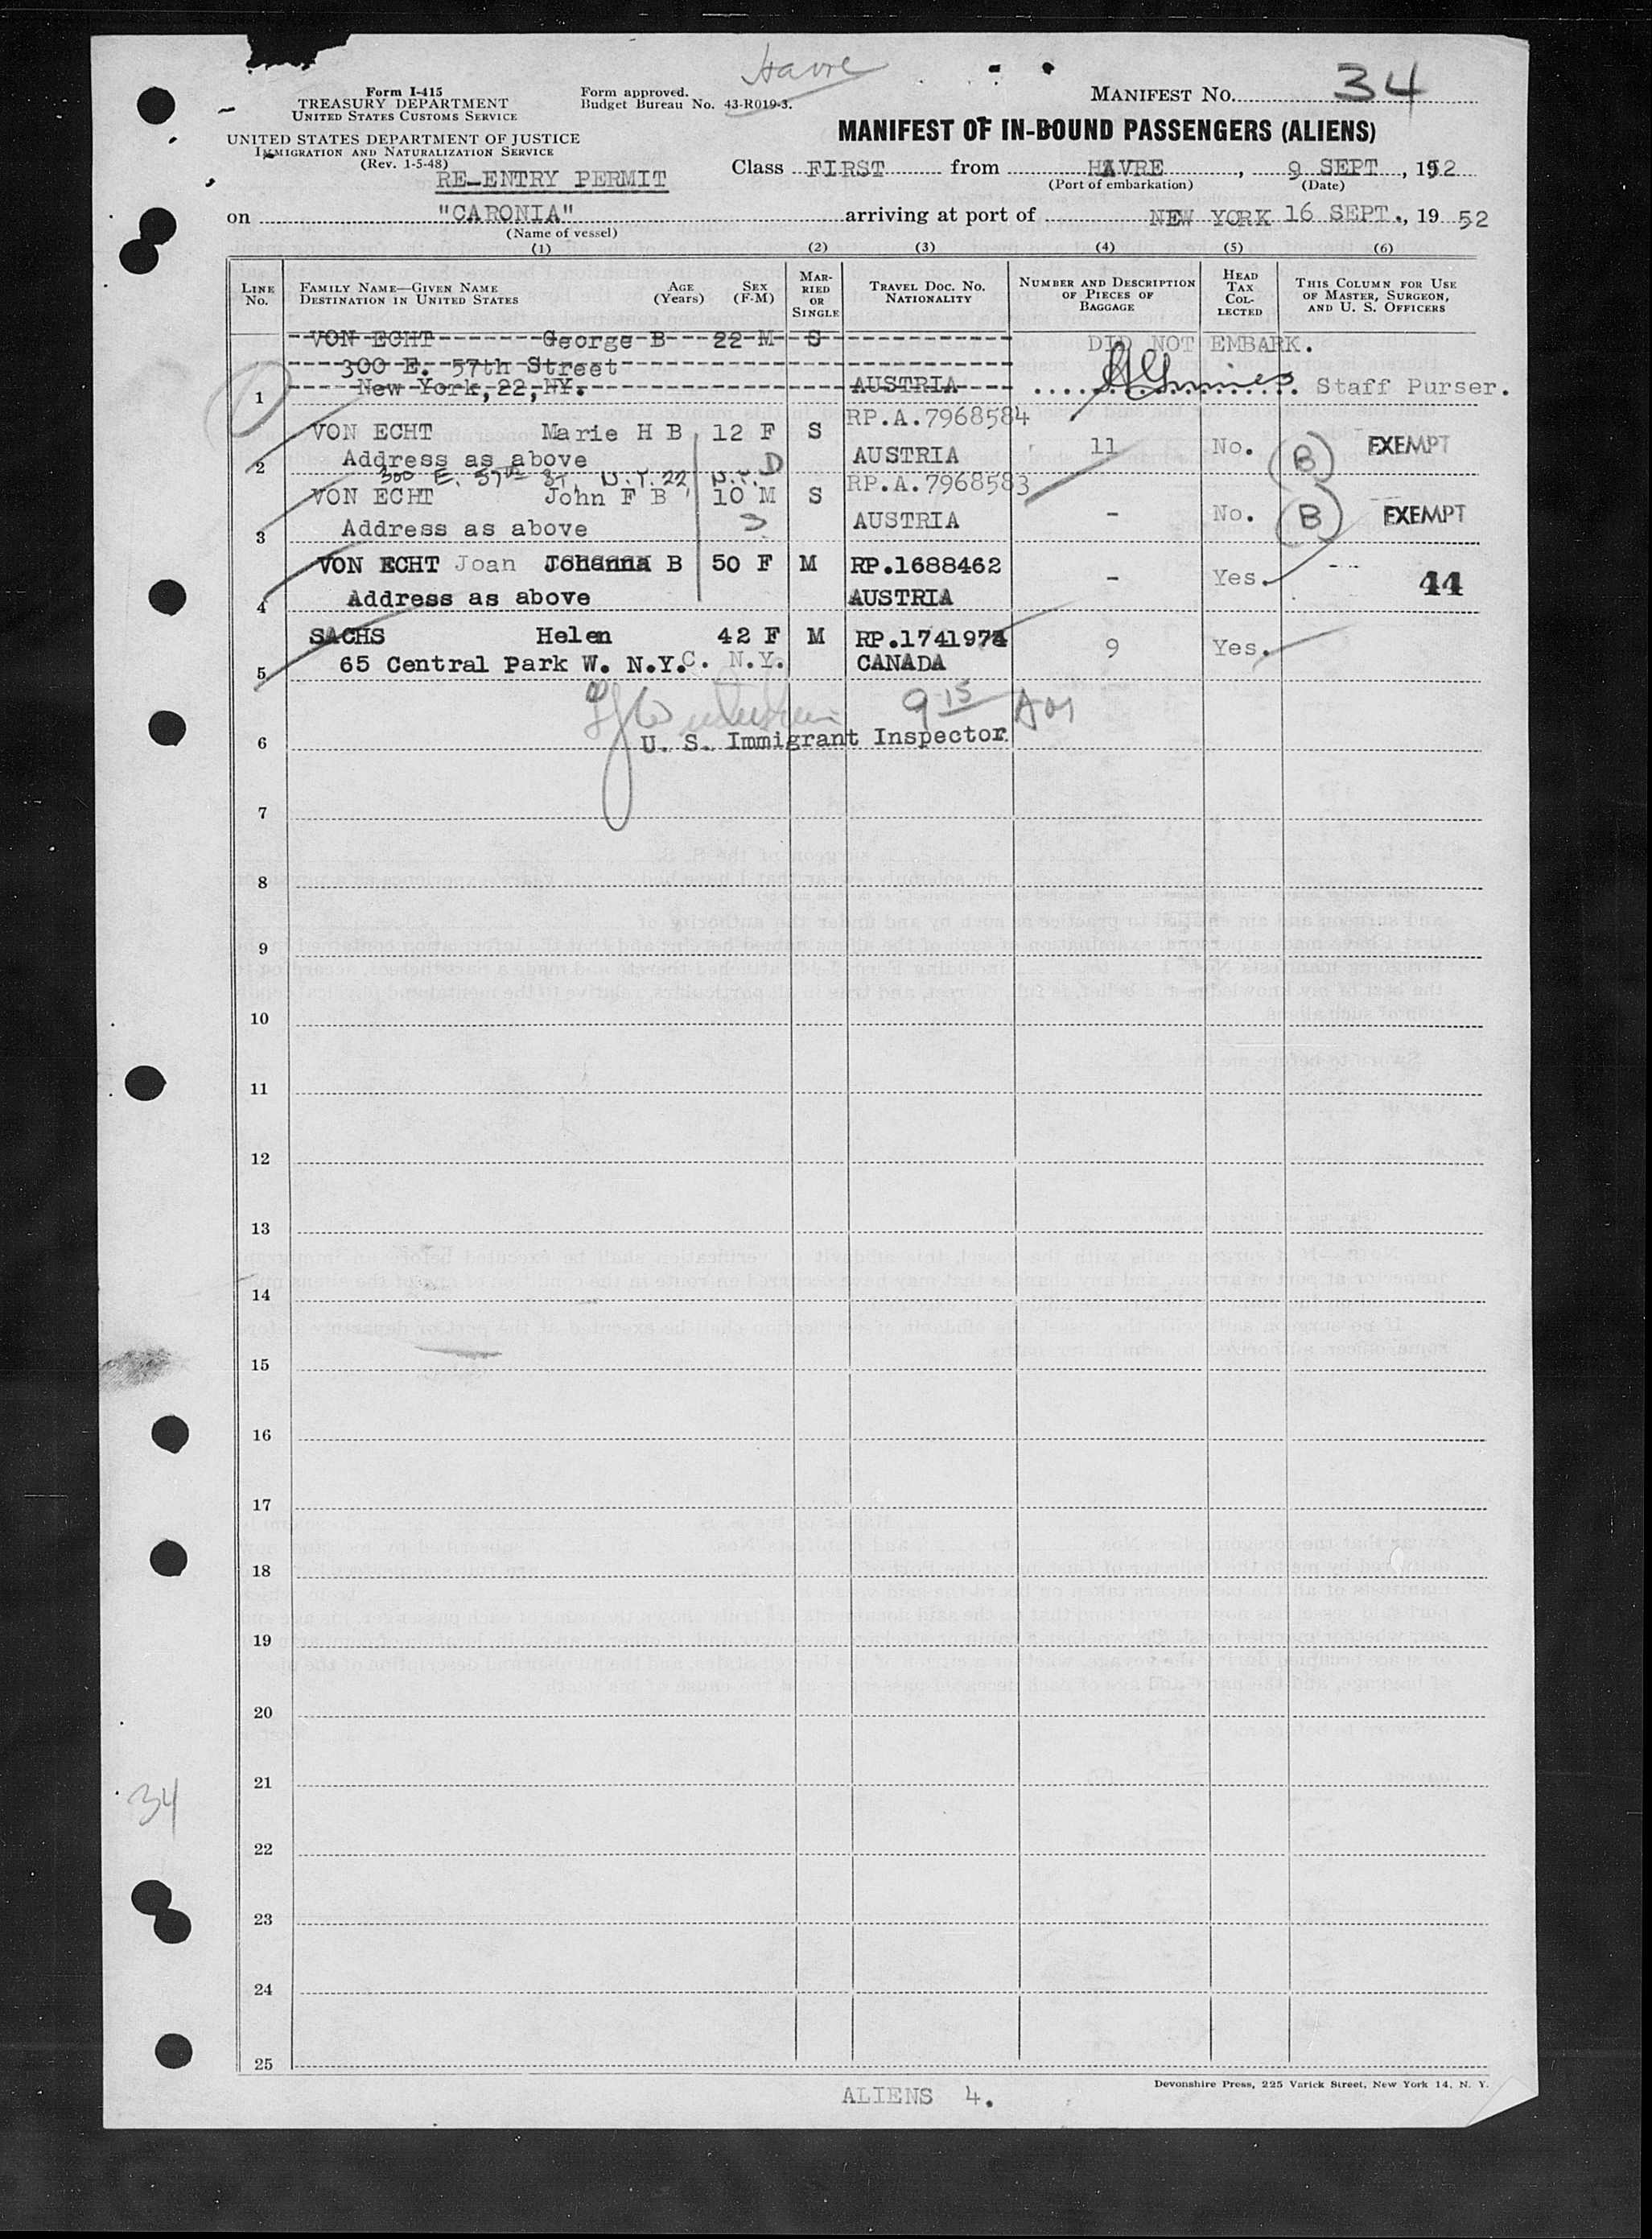 Havre
Form I-415
TREASURY DEPARTMENT
UNITED STATES CUSTOMS SERVICE
Form approved.
Budget Bureau No. 43-R019-3.
MANIFEST NO. 34
UNITED STATES DEPARTMENT OF JUSTICE
IMMIGRATION AND NATURALIZATION SERVICE
(Rev. 1-5-48)
MANIFEST OF IN-BOUND PASSENGERS (ALIENS)
RE-ENTRY PERMIT
Class FIRST from HAVRE, 9 SEPT, 1952
(Port of embarkation) (Date)
on "CARONIA" arriving at port of NEW YORK 16 SEPT., 19 52
(Name of vessel)
(1) (2) (3) (4) (5) (6)
LINE NO. FAMILY NAME—GIVEN NAME DESTINATION IN UNITED STATES AGE (Years) SEX (F-M) MARRIED OR SINGLE TRAVEL DOC. NO. NATIONALITY NUMBER AND DESCRIPTION OF PIECES OF BAGGAGE HEAD TAX COLLECTED THIS COLUMN FOR USE OF MASTER, SURGEON, AND U. S. OFFICERS
VON ECHT George B 22 M S DID NOT EMBARK.
300 E. 57th Street
1 New York, 22, NY. AUSTRIA Staff Purser.
VON ECHT Marie H B 12 F S RP.A.7968584
2 Address as above D AUSTRIA 11 No. B EXEMPT
300 E. 57th St. N.Y. 22, N.Y.
VON ECHT John F B 10 M S RP.A.7968583
3 Address as above AUSTRIA - No. B EXEMPT
VON ECHT Joan Johanna B 50 F M RP.1688462 - Yes. 44
4 Address as above AUSTRIA
SACHS Helen 42 F M RP.1741974 9 Yes.
5 65 Central Park W. N.Y.C. N.Y. CANADA
9 15 AM
6 U. S. Immigrant Inspector
7
8
9
10
11
12
13
14
15
16
17
18
19
20
21
34
22
23
24
25
Devonshire Press, 225 Varick Street, New York 14, N. Y.
ALIENS 4.